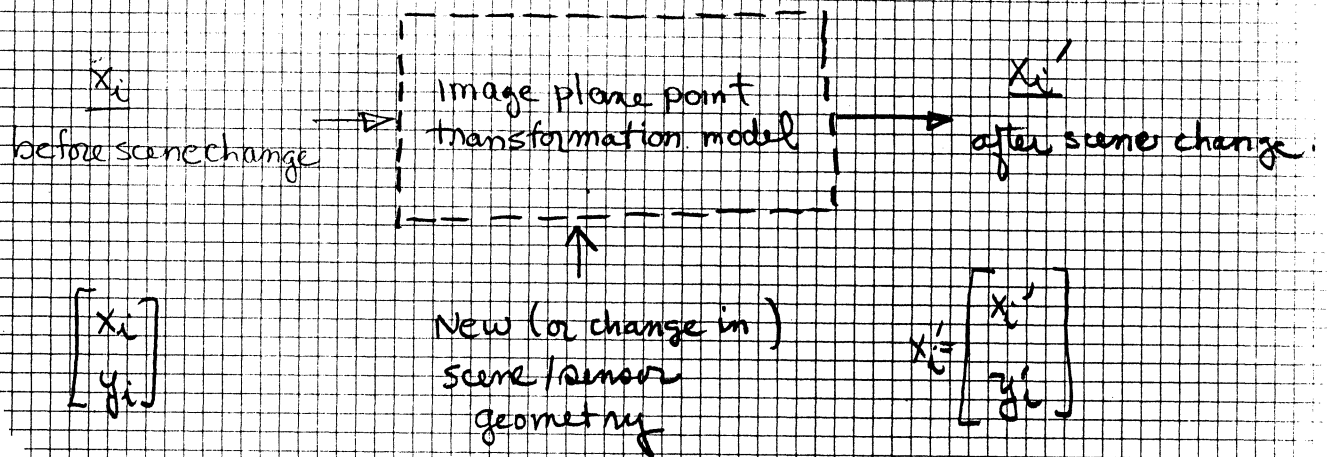 x_i
before scene change
Image plane point
transformation model
x_i'
after scene change.
[x_i
y_i]
New (or change in)
scene/sensor
geometry
x_i' = [x_i'
y_i']